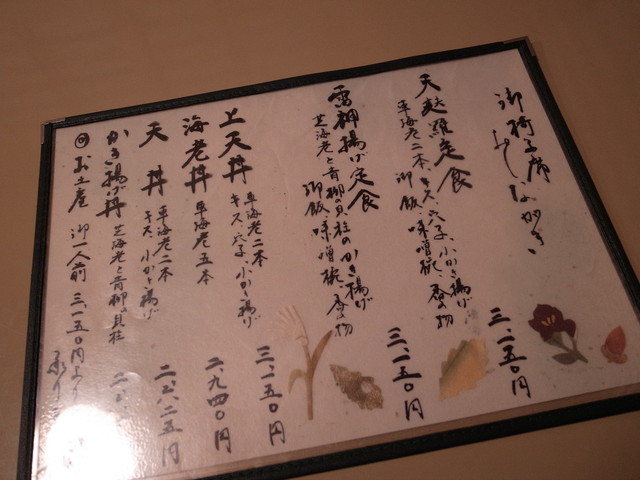 御椅子席
おしながき
天麩羅定食
車海老二本、キス、穴子、小かき揚げ
御飯、味噌椀、香の物
三、一五〇円
雷神揚げ定食
芝海老と青柳の貝柱のかき揚げ
御飯、味噌椀、香の物
三、一五〇円
上天丼
車海老二本
キス、穴子、小かき揚げ
三、一五〇円
海老丼
車海老五本
二、九四〇円
天丼
車海老二本
キス、小かき揚げ
二、六二五円
かき揚げ丼
芝海老と青柳の貝柱
二、
◎お土産 御一人前 三、一五〇円より